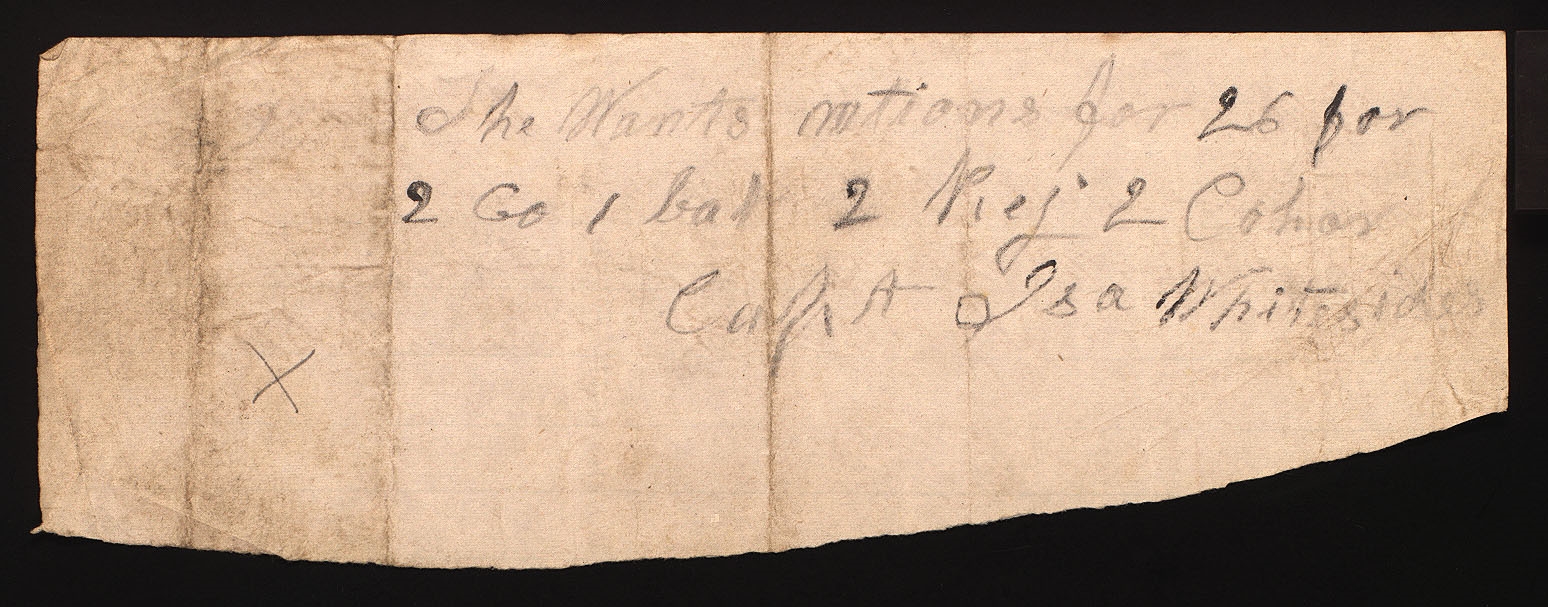 The Wants rations for 26 for
2 Co 1 bat 2 Rej 2 Cohor
Capt Isa Whitesides
X